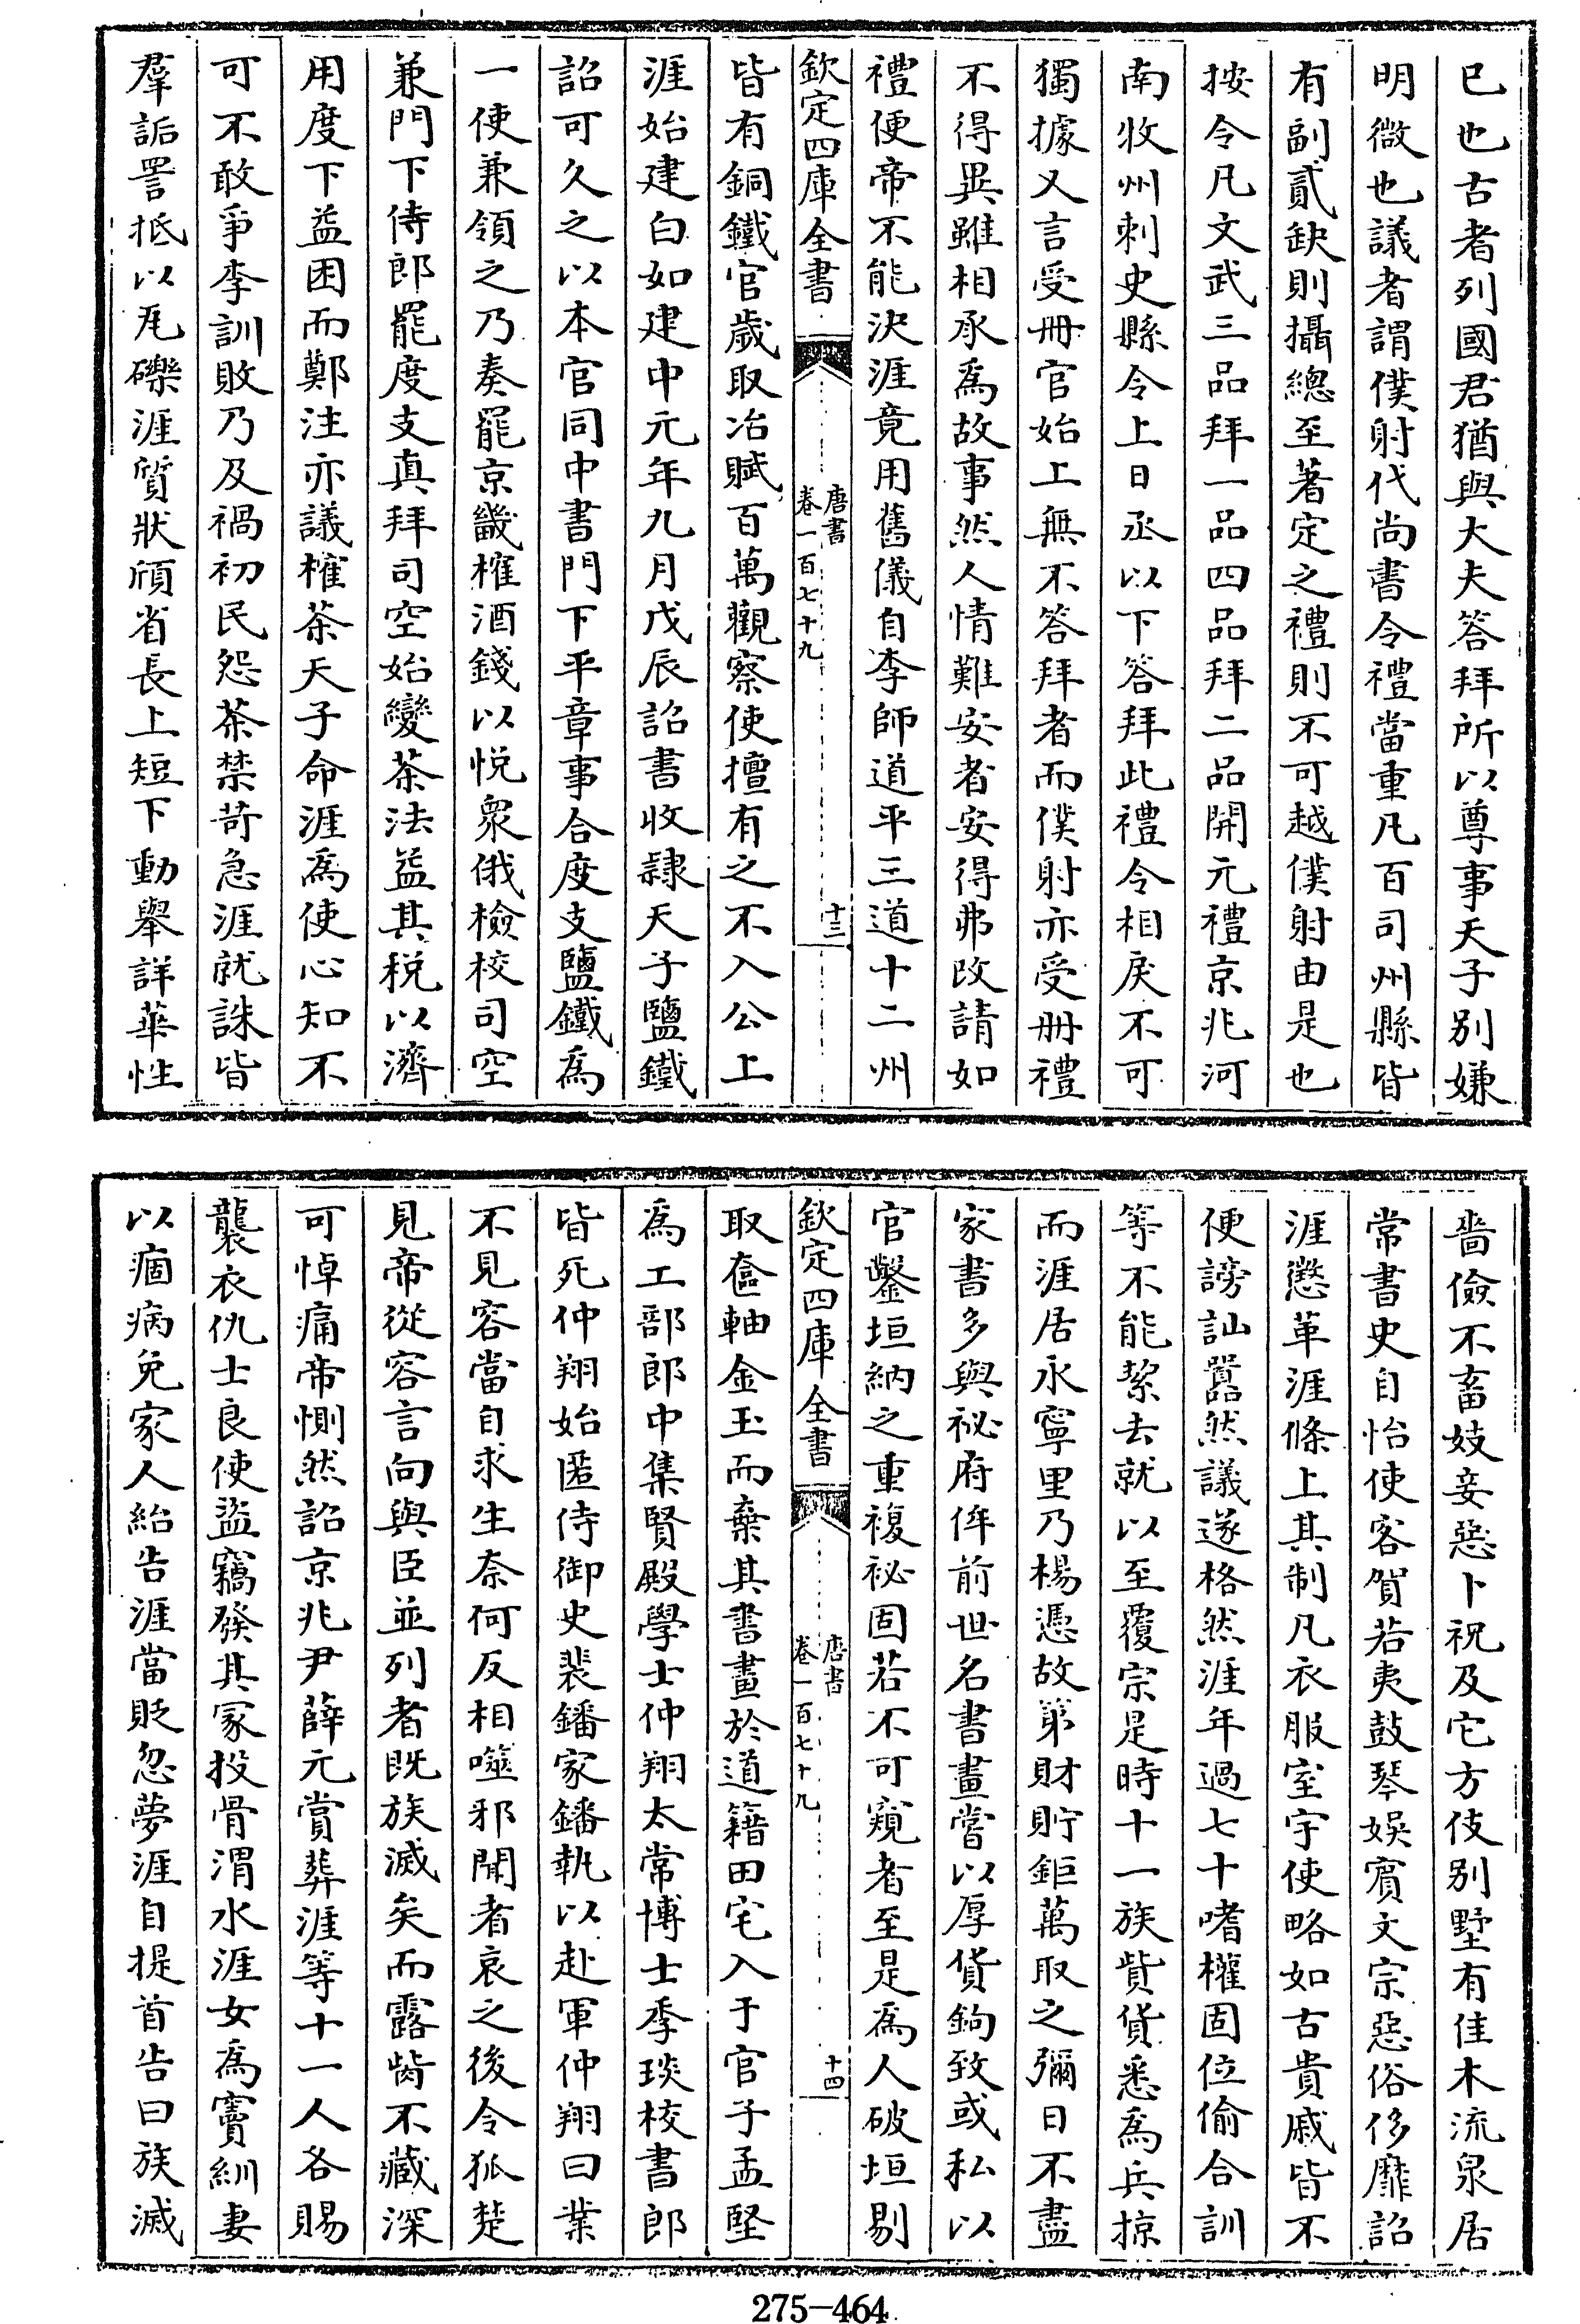 已也古者列國君猶與大夫答拜所以尊事天子别嫌
明微也議者謂僕射代尚書令禮當重凡百司州縣皆
有副貳缺則攝總至著定之禮則不可越僕射由是也
按令凡文武三品拜一品四品拜二品開元禮京兆河
南收州刺史縣令上日丞以下答拜此禮令相戾不可
獨據又言受冊官始上無不答拜者而僕射亦受冊禮
不得異雖相承為故事然人情難安者安得弗改請如
禮便帝不能決涯竟用舊儀自李師道平三道十二州
欽定四庫全書
唐書
卷一百七十九
十三
皆有銅鐵官歲取冶賦百萬觀察使擅有之不入公上
涯始建白如建中元年九月戊辰詔書收隸天子鹽鐵
詔可久之以本官同中書門下平章事合度支鹽鐵為
一使兼領之乃奏罷京畿榷酒錢以悅衆俄檢校司空
兼門下侍郎罷度支真拜司空始變茶法益其稅以濟
用度下益困而鄭注亦議榷茶天子命涯為使心知不
可不敢爭李訓敗乃及禍初民怨茶禁苛急涯就誅皆
羣詬詈抵以瓦礫涯質狀頎省長上短下動舉詳華性
嗇儉不畜妓妾惡卜祝及它方伎别墅有佳木流泉居
常書史自怡使客賀若夷鼓琴娛賓文宗惡俗侈靡詔
涯懲革涯條上其制凡衣服室宇使略如古貴戚皆不
便謗訕囂然議遂格然涯年過七十嗜權固位偷合訓
等不能絜去就以至覆宗是時十一族貲貨悉為兵掠
而涯居永寧里乃楊憑故第財貯鉅萬取之彌日不盡
家書多與祕府侔前世名書畫嘗以厚貨鉤致或私以
官鑿垣納之重複祕固若不可窺者至是為人破垣剔
欽定四庫全書
唐書
卷一百七十九
十四
取奩軸金玉而棄其書畫於道籍田宅入于官子孟堅
為工部郎中集賢殿學士仲翔太常博士季琰校書郎
皆死仲翔始匿侍御史裴鐇家鐇執以赴軍仲翔曰業
不見容當自求生奈何反相噬邪聞者哀之後令狐楚
見帝從容言向與臣並列者既族滅矣而露胔不藏深
可悼痛帝惻然詔京兆尹薛元賞葬涯等十一人各賜
襲衣仇士良使盜竊發其冢投骨渭水涯女為竇紃妻
以痼病免家人紿告涯當貶忽夢涯自提首告曰族滅
275-464